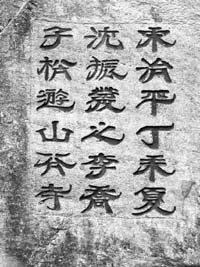 宋治平丁未夏
沈振發之李喬
子松遊山寺